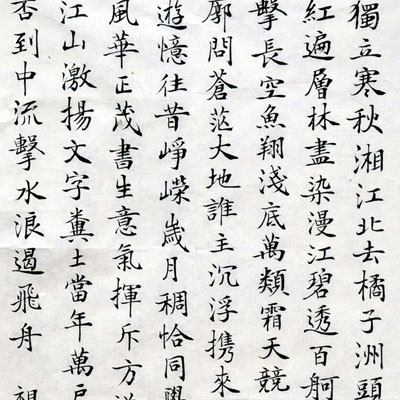 獨立寒秋湘江北去橘子洲頭
紅遍層林盡染漫江碧透百舸
擊長空魚翔淺底萬類霜天競
廓問蒼茫大地誰主沉浮携來
遊憶往昔崢嶸歲月稠恰同學
風華正茂書生意氣揮斥方遒
江山激揚文字糞土當年萬戶
否到中流擊水浪遏飛舟